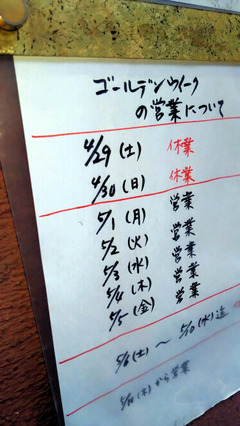 ゴールデンウィーク
の営業について
4/29 (土) 休業
4/30 (日) 休業
5/1 (月) 営業
5/2 (火) 営業
5/3 (水) 営業
5/4 (木) 営業
5/5 (金) 営業
5/6 (土) ～ 5/10 (水) 迄
5/11 (木) から営業